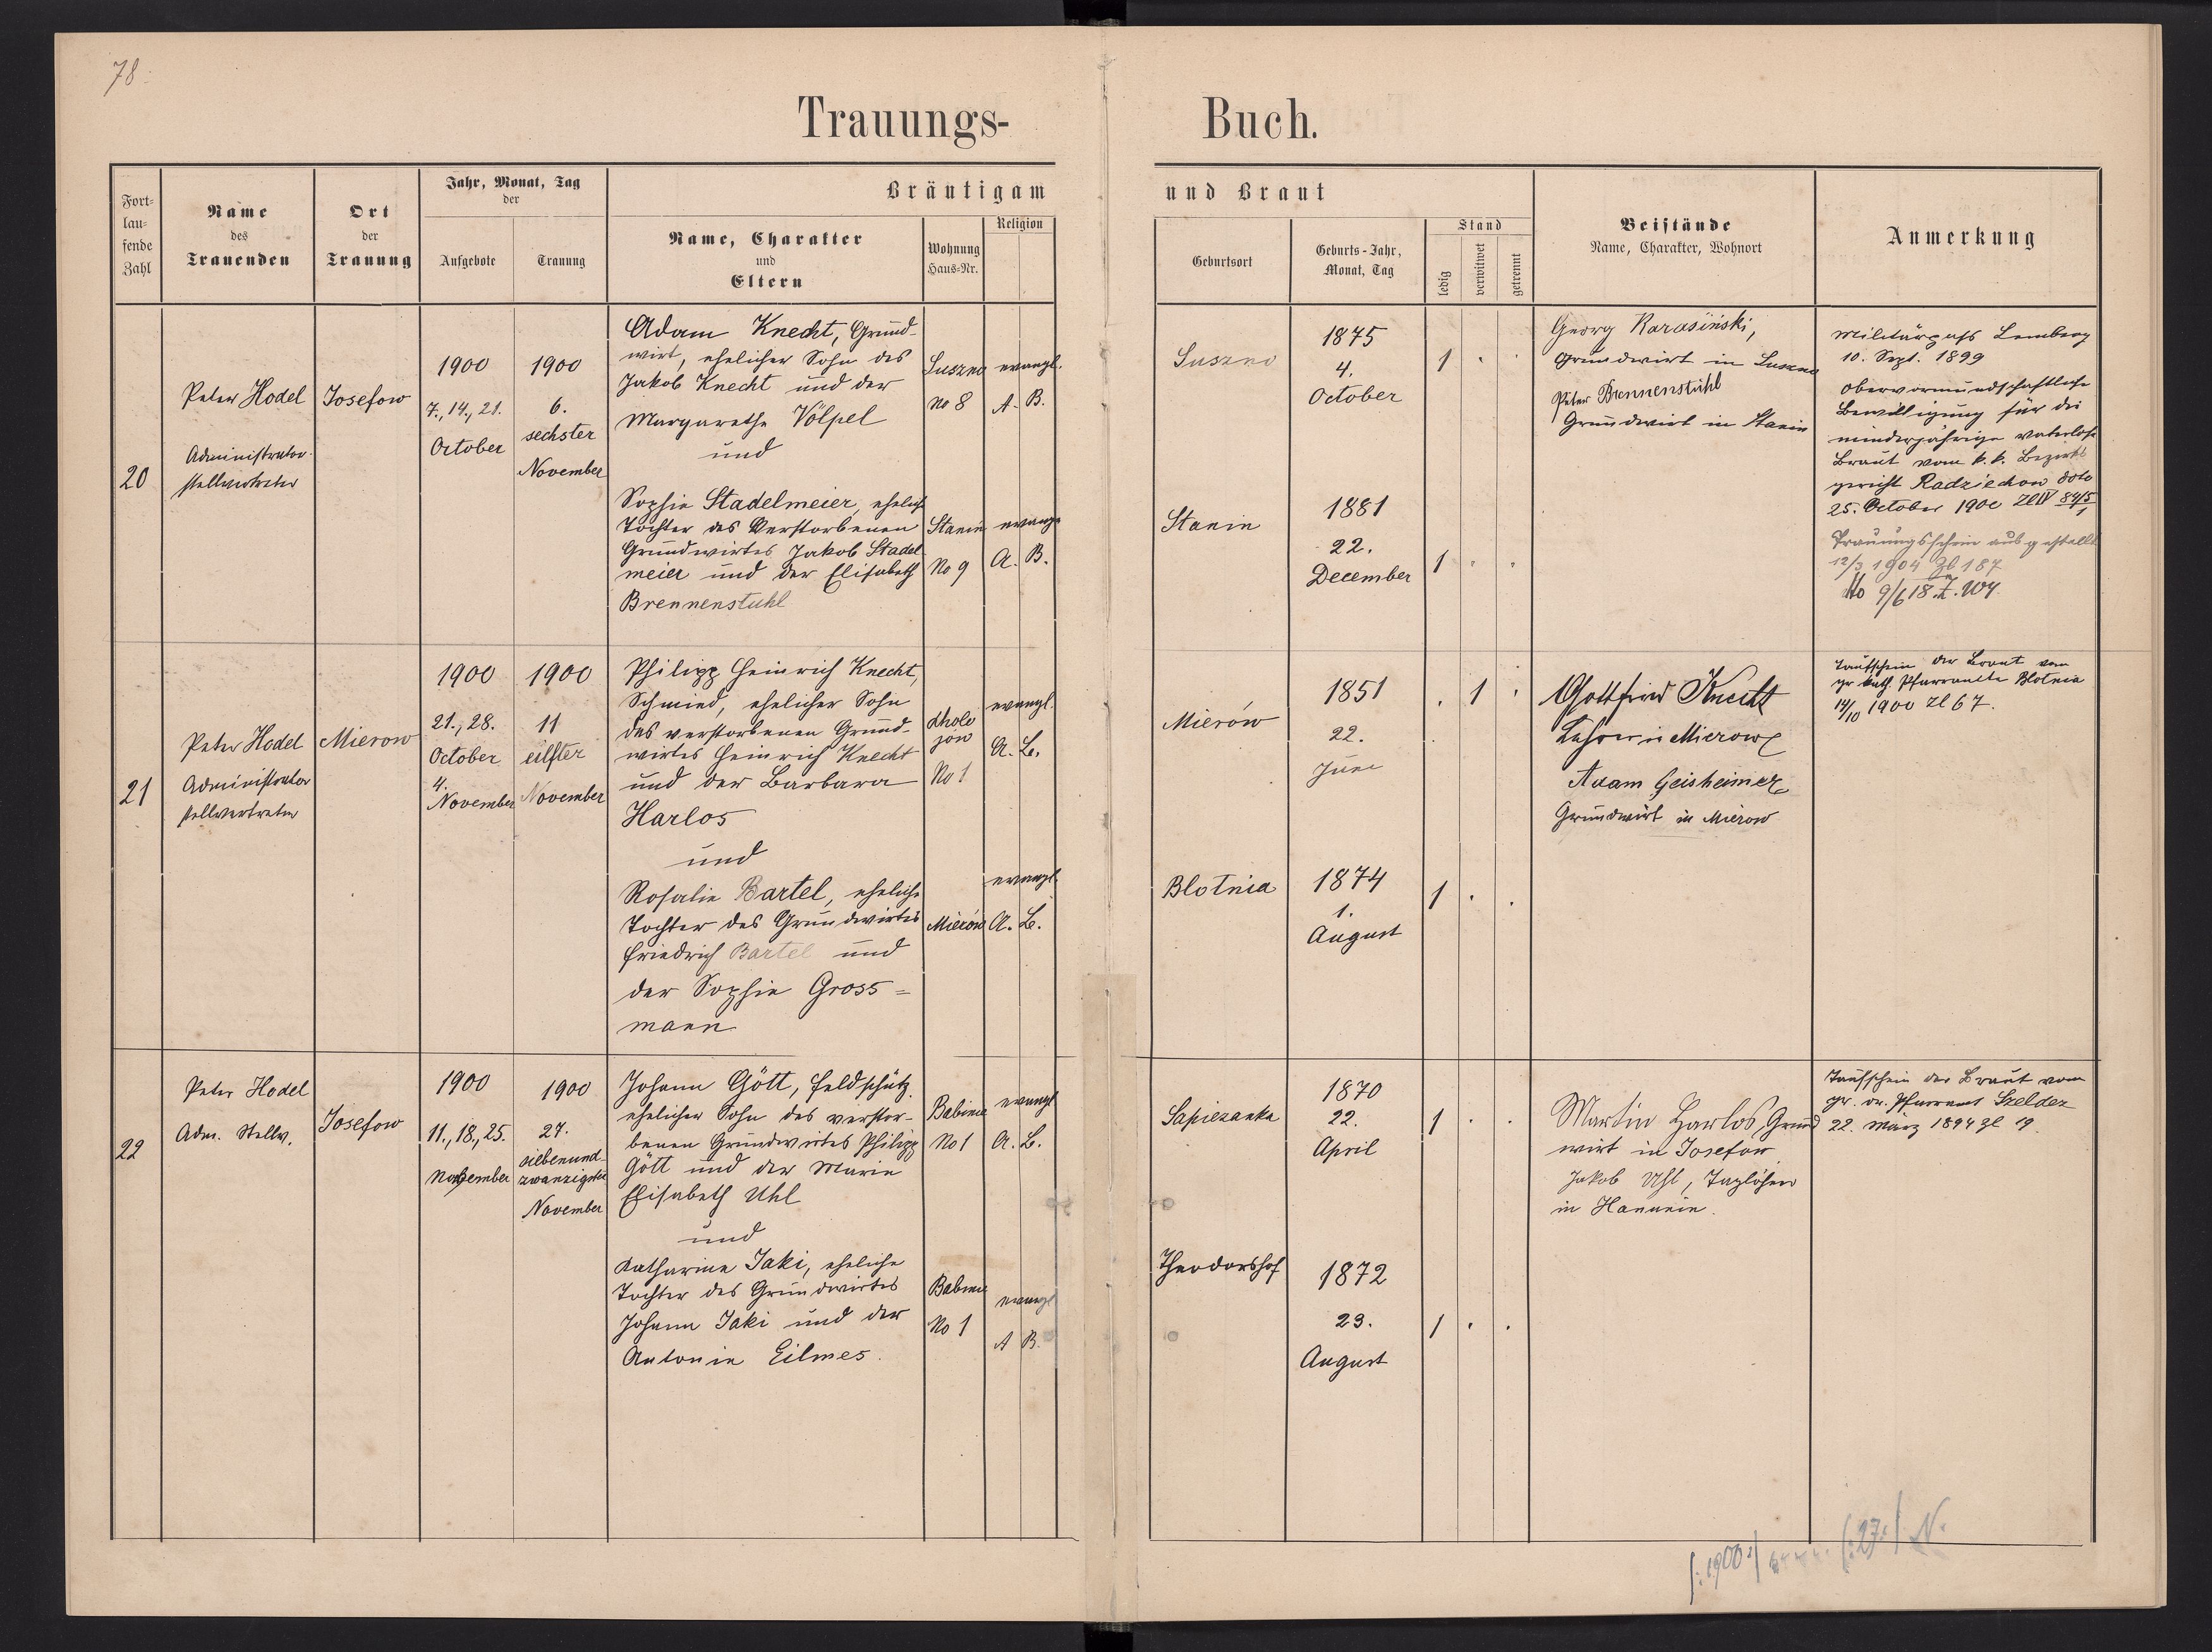 78.
Trauungs- Buch.
Fort-
lau-
fende
Zahl
Name
des
Trauenden
Ort
der
Trauung
Jahr, Monat, Tag
der
Aufgebote
Trauung
Bräutigam
Name, Charakter
und
Eltern
Wohnung
Haus-Nr.
Religion
und Braut
Geburtsort
Geburts-Jahr,
Monat, Tag
Stand
ledig
verwitwet
getrennt
Beistände
Name, Charakter, Wohnort
Anmerkung
20
Peter Hodel
Administrator-
stellvertreter
Josefow
1900
7., 14., 21.
October
1900
6.
sechster
November
Adam Knecht, Grund-
wirt, ehelicher Sohn des
Jakob Knecht und der
Margarethe Völpel
und
Sophie Stadelmeier, ehelich
Tochter des Verstorbenen
Grundwirtes Jakob Stadel
meier und der Elisabeth
Brennenstuhl
Suszno
No 8
evangl.
A. B.
Stanin
No 9
evang
A. B.
Suszno
1875
4.
October
1 . .
Stanin
1881
22.
December
1 . .
Georg Karasiński,
Grundwirt in Suszno
Peter Brennenstuhl
Grundwirt in Stanin
Militärpass Lemberg
10. Sept. 1899
Obervormundschaftliche
Bewilligung für die
minderjährige vaterlose
Braut vom k. k. Bezirks
gericht Radziechow ddto
25. October 1900 ZlIV 84/5
1
Trauungsschein ausgestellt
12/3 1904 Zl 187
9/6 18. Z. 104
21
Peter Hodel
Administrator
stellvertreter
Mierow
1900
21., 28.
October
4.
November
1900
11
eilfter
November
Philipp Heinrich Knecht,
Schmied, ehelicher Sohn
des verstorbenen Grund-
wirtes Heinrich Knecht
und der Barbara
Harlos
und
Rosalie Bartel, eheliche
Tochter des Grundwirtes
Friedrich Bartel und
der Sophie Gross=
mann
Chole
jów
No 1
evangl.
A. B.
Mierów
evangl.
A. B.
Mierów
1851
22.
Juni
. 1 .
Blotnia
1874
1.
August
1 . .
Gottfried Knecht
Lehrer in Mierow
Adam Geisheimer
Grundwirt in Mierow
Taufschein der Braut vom
gr. kath. Pfarramte Blotnia
14/10 1900 Zl 67.
22
Peter Hodel
Adm. Stellv.
Josefow
1900
11., 18., 25.
November
1900
27.
siebenund-
zwanzigster
November
Johann Gött, Feldschütz.
ehelicher Sohn des verstor-
benen Grundwirtes Philipp
Gött und der Marie
Elisabeth Uhl
und
Katharine Jaki, eheliche
Tochter des Grundwirtes
Johann Jaki und der
Antonie Eilmes.
Babinie
No 1
evangl
A. B.
Babinie
No 1
evangl
A B.
Sapiezanka
1870
22.
April
1 . .
Theodorshof
1872
23.
August
1 . .
Martin Harlos, Grund
wirt in Josefow
Jakob Uhl, Taglöhner
in Hanunin.
Taufschein der Braut vom
Pfarramt
22. März 1894 Zl 19.
/:1900:/ /:27:/ N.